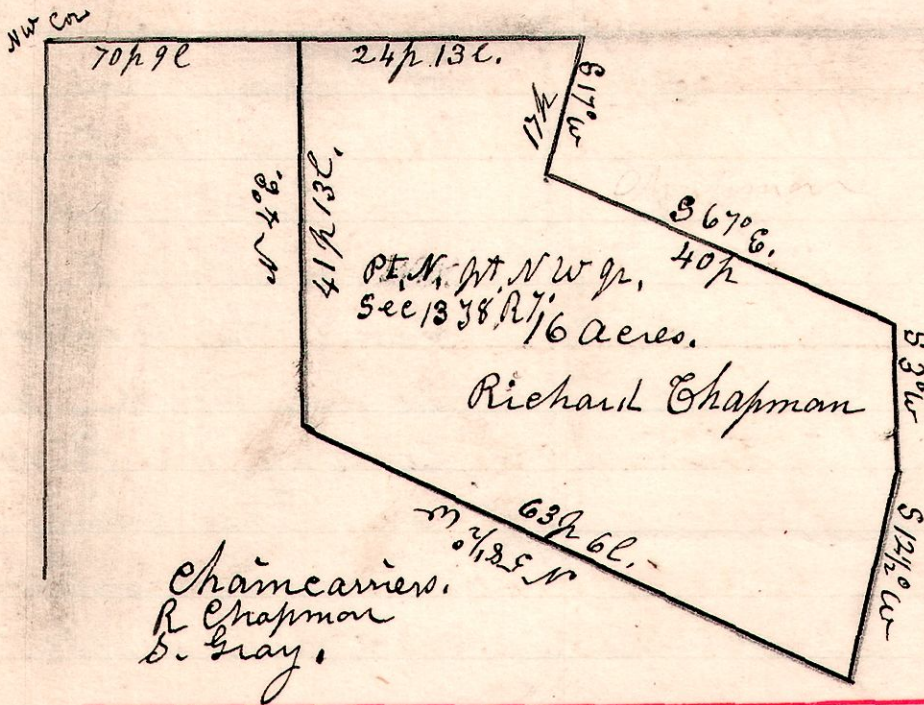 NW Cor
70p 9l
24p. 13l.
S 17° W
17p
41p 13l.
S 67° E.
40p
Pt. N. pt. N W qr.
Sec 13 T8 R7.
16 acres.
Richard Chapman
S 3° W
S 12½° W
63p 6l.
W
N
Chaincarriers.
R Chapman
S. Gray.